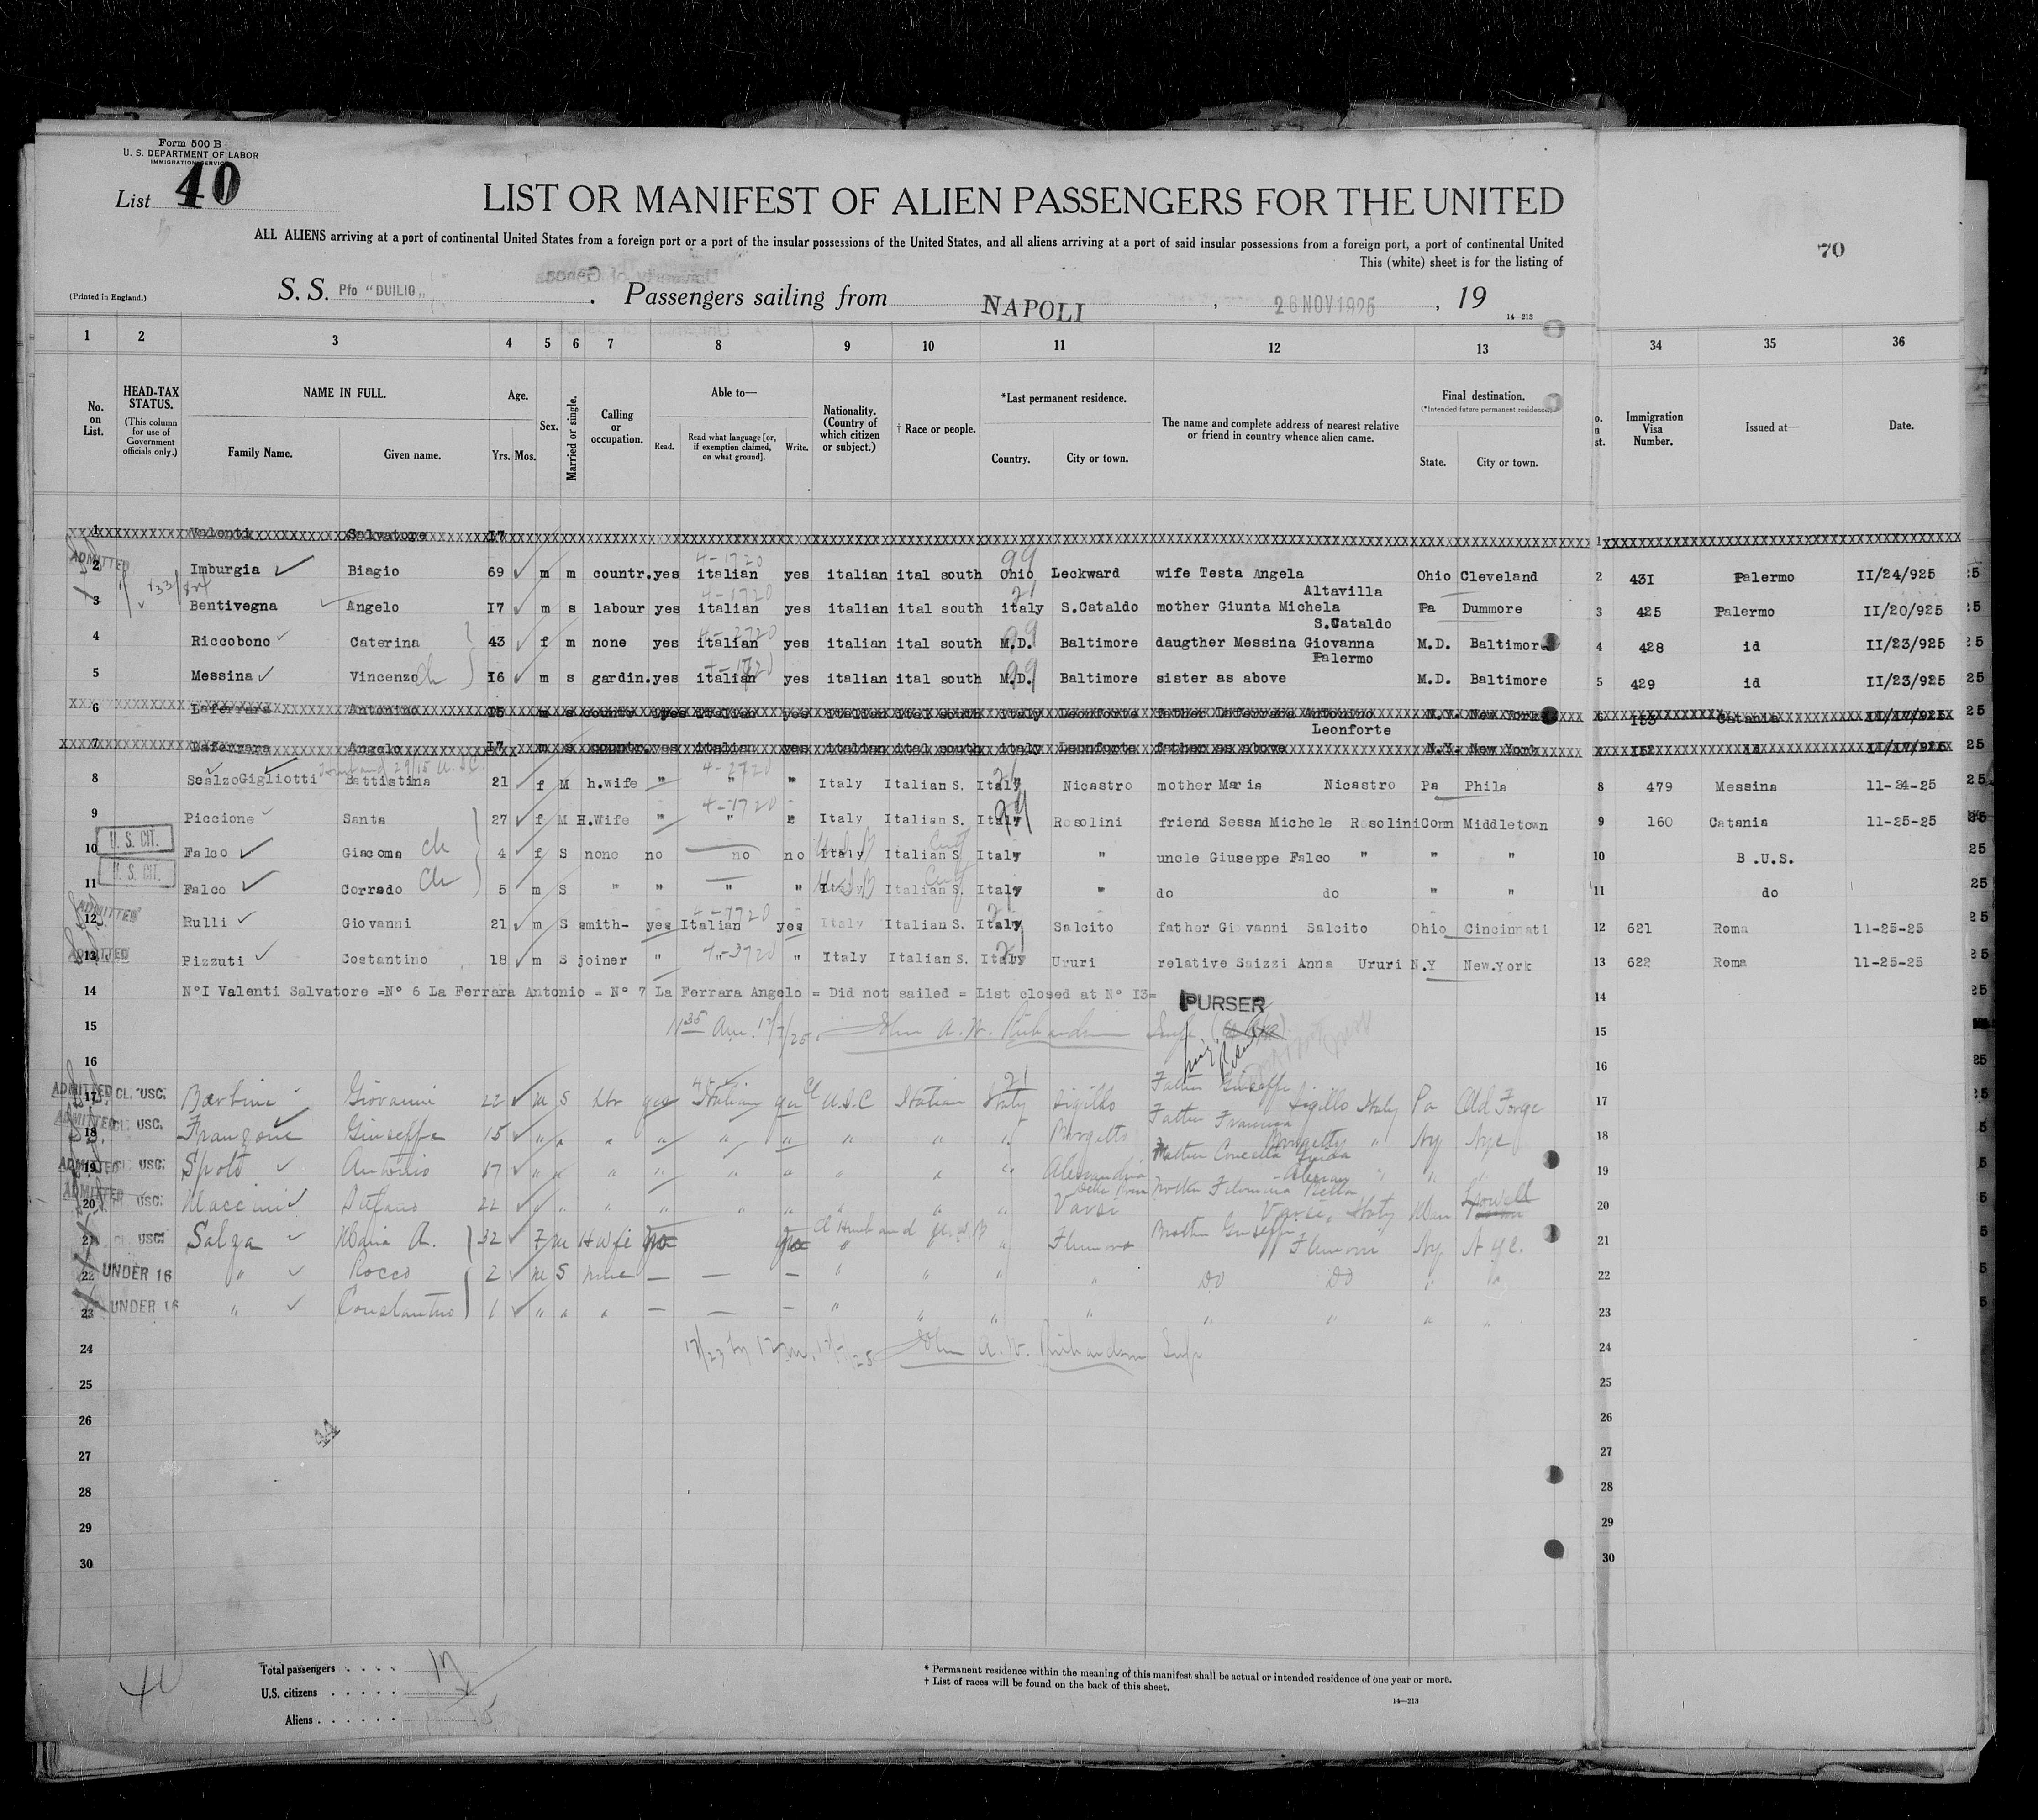 Form 500 B
U. S. DEPARTMENT OF LABOR
IMMIGRATION SERVICE
List 40
LIST OR MANIFEST OF ALIEN PASSENGERS FOR THE UNITED
ALL ALIENS arriving at a port of continental United States from a foreign port or a port of the insular possessions of the United States, and all aliens arriving at a port of said insular possessions from a foreign port, a port of continental United
This (white) sheet is for the listing of
70
(Printed in England.)
S. S. Pfo "DUILIO" . Passengers sailing from NAPOLI , 26 NOV 1925 , 19
14—213
1 2 3 4 5 6 7 8 9 10 11 12 13 34 35 36
No. on List.
HEAD-TAX STATUS.
(This column for use of Government officials only.)
NAME IN FULL.
Family Name. Given name.
Age.
Yrs. Mos.
Sex.
Married or single.
Calling or occupation.
Able to—
Read. Read what language [or, if exemption claimed, on what ground]. Write.
Nationality. (Country of which citizen or subject.)
† Race or people.
*Last permanent residence.
Country. City or town.
The name and complete address of nearest relative or friend in country whence alien came.
Final destination.
(*Intended future permanent residence.)
State. City or town.
Immigration Visa Number.
Issued at—
Date.
1 Valenti Salvatore 17 1
ADMITTED
2 Imburgia Biagio 69 m m countr. yes italian yes italian ital south Ohio Leckward wife Testa Angela Ohio Cleveland 2 43I Palermo II/24/925
Altavilla
3 Bentivegna Angelo I7 m s labour yes italian yes italian ital south italy S.Cataldo mother Giunta Michela Pa Dummore 3 425 Palermo II/20/925
S.Cataldo
4 Riccobono Caterina 43 f m none yes italian yes italian ital south M.D. Baltimore daugther Messina Giovanna M.D. Baltimore 4 428 id II/23/925
Palermo
5 Messina Vincenzo ch I6 m s gardin. yes italian yes italian ital south M.D. Baltimore sister as above M.D. Baltimore 5 429 id II/23/925
6 Laferrara Antonino I5 m s countr yes italian yes italian ital south italy Leonforte father Laferrara Antonino N.Y. New York 6 153 Catania II/I7/925
Leonforte
7 Laferrara Angelo I7 m s countr. yes italian yes italian ital south italy Leonforte father as above N.Y. New York 152 id II/I7/925
8 Scalzo Gigliotti Battistina 21 f M h.wife " " " Italy Italian S. Italy Nicastro mother Maria Nicastro Pa Phila 8 479 Messina 11-24-25
9 Piccione Santa 27 f M H.Wife " " " Italy Italian S. Italy Rosolini friend Sessa Michele Rosolini Conn Middletown 9 160 Catania 11-25-25
U. S. CIT.
10 Falco Giacoma ch 4 f S none no no no Italy Italian S Italy " uncle Giuseppe Falco " " " 10 B.U.S.
U. S. CIT.
11 Falco Corrado ch 5 m S " " " " Italian S. Italy " do do " " 11 do
ADMITTED
12 Rulli Giovanni 21 m S smith- yes Italian yes Italy Italian S. Italy Salcito father Giovanni Salcito Ohio Cincinnati 12 621 Roma 11-25-25
ADMITTED
13 Pizzuti Costantino 18 m S joiner " " Italy Italian S. Italy Ururi relative Saizzi Anna Ururi N.Y New.York 13 622 Roma 11-25-25
14 N°I Valenti Salvatore =N° 6 La Ferrara Antonio = N° 7 La Ferrara Angelo = Did not sailed = List closed at N° I3= 14
PURSER
15 John A. W. Richardson 15
16 16
ADMITTED USC.
17 Giovanni 22 m S yes Italian U.S.C Italian Italy Sigillo Father Giuseppe Sigillo Italy Pa Old Forge 17
ADMITTED USC.
18 Franzone Giuseppe 15 " " " " " " " " " Borgetto Father Francesco Borgetto " Ny Nyc 18
ADMITTED USC.
19 Spoto 17 " " " " " " " " " Alessandria Mother Concetta " " 19
ADMITTED USC.
20 Stefano 22 " " " " " " " " " Varsi Mother Filomena Varsi, Italy Lowell 20
USC.
21 Salza Maria A. 32 F m H wife no no Husband " Mother Giuseppa Ny N.Y.C. 21
22 UNDER 16 " Rocco 2 m S none — — — " " " " Do Do " " 22
23 UNDER 16 " Constantino 1 " " " — — — " " " " " " " " 23
24 John A. W. Richardson 24
25 25
26 26
27 27
28 28
29 29
30 30
40
Total passengers . . . . 17
U.S. citizens . . . . .
Aliens . . . . . .
* Permanent residence within the meaning of this manifest shall be actual or intended residence of one year or more.
† List of races will be found on the back of this sheet.
14—213